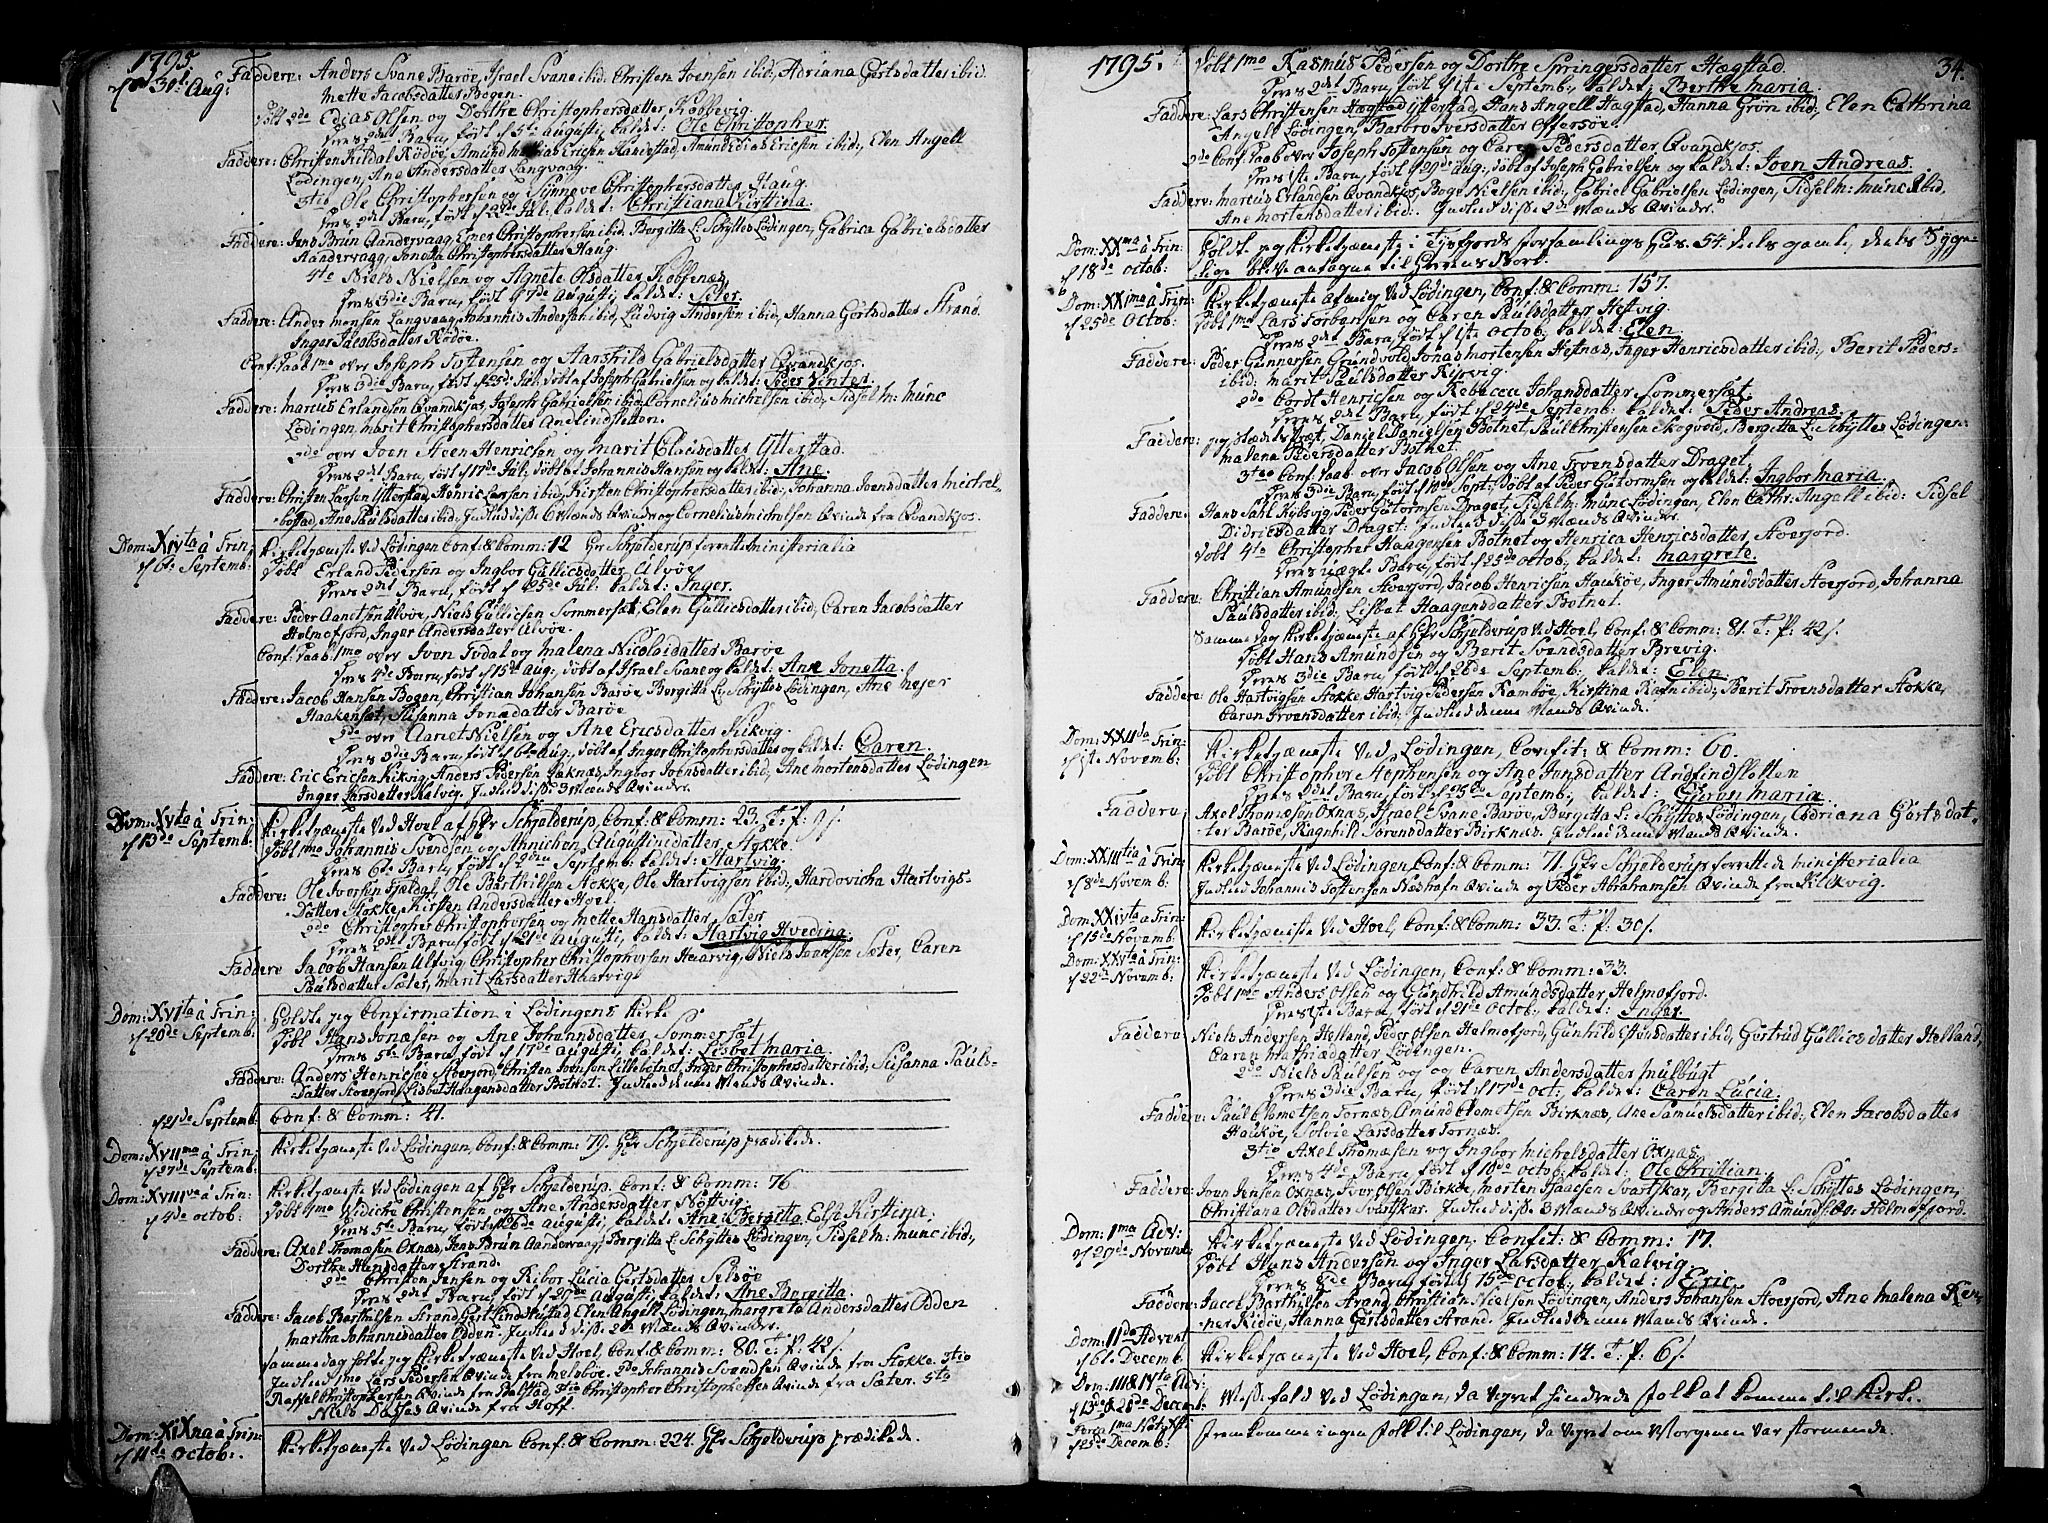 1795.
d. 30t. Aug:
Faddere: Anders Svane Barøe, Israel Svane ibid, Christen Joensen ibid; Adriana Gertsdatter ibid.
Mette Jacobsdatter Bogen.
Døbt 2de Olsen og Dorthe Christophersdatter, Kobbevig.
Deres 2det Barn, født d. 5te Augusti, kaldet: Ole Christopher.
Faddere: Christen Kildal Rödöe, Amund Mathias Ericsen Hanestad, Amund Ericsen ibid:, Elen Angell
Lödingen, Ane Andersdatter Langvaag.
3tio Ole Christophersen og Synneve Christophersdatter Haug.
Deres 2det Barn, født d. Jul: kaldet: Christiana Kirstina.
Faddere: Jens Brun Aandervaag, Christophersen ibid: Bergitta L. Schyttes Lödingen, Gabrica Gabrielsdatter
Aandervaag, Jonetta Christophersdatter Haug
4te Niels Nielsen og Agnete Olsdatter Kobbenæs
Deres 3die Barn, født d. 7de Augusti, kaldet: Peter.
Faddere: Ander Monsen Langvaag, Johannis Andersen ibid, Ludvig Andersen ibid, Hanna Gertsdatter Strand
Inger Jacobsdatter Rödöe.
Conf: Daab 1mo over Joseph Tostensen og Aarshild Gabrielsdatter Qvandkjos.
Deres 3die Barn, født d. 25d. Jul. døbt af Joseph Gabrielsen og kaldet: Peder Winter.
Faddere: Marcus Erlandsen Qvandkjos, Joseph Gabrielsen ibid, Cornelius Michelsen ibid:, Sidsel M: Munc
Lödingen, Marit Christophersdatter Anfindsletten.
2de over Joen Steen Henricsen og Marit Clausdatter Ytterstad.
Deres 2det Barn, født d. 17de Jul: døbt af Johannis Hansen og kaldet: Ane.
Faddere: Christen Larsen Ytterstad, Henric Larsen ibid, Kirsten Christophersdatter ibid:, Johanna Joensdatter Michel-
bostad, Ane Paulsdatter ibid, Indled disse 6 Mænds Qvinder og Cornelius Michelsen Qvinde fra Qvandkjos.
Dom: XIVta á Trin:
d. 6te Septemb:
Kirketjæneste ved Lödingen Conf: & Comm: 12 Hr. Schjelderup forrettede Ministerialia
Døbt Erland Pedersen og Ingbor Gullicsdatter Alvöe.
Deres 2det Barn, født d. 25de Jul: kaldet: Inger.
Faddere: Peder Aanetsen Alvöe, Niels Gullicsen Sommerset, Elen Gullicsdatter ibid, Caren Jacobsdatter
Holmofjord, Inger Andersdatter Alvöe.
Conf: Daab 1mo over Iven Tvdal og Malena Nicolaidatter Baröe
Deres 4de Barn, født d. 15de Aug: døbt af Israel Svane og kaldet: Ane Jonetta.
Faddere: Jacob Hansen Bogen, Christian Johansen Baröe, Bergitta L. Schyttes Lödingen, Ane Mejer
Haakenset, Susanna Jonædatter Baröe
2de over Aanet Nielsen og Ane Ericsdatter Kikvig.
Deres 3die Barn, født d. 6te Aug. døbt af Inger Christophersdatter og kaldet: Caren.
Faddere: Eric Ericsen Kikvig, Anders Pedersen, Ingbor Joensdatter ibid, Ane Mortensdatter Lödingen
Inger Larsdatter Kalvig. Indled disse 3 Mænds Qvinder.
Dom: XVta á Trin:
d. 13de Septemb:
Kirketjæneste ved Hoel af Hr Schjelderup, Conf: & Comm: 23. T. P: 9/.
Døbt 1mo Johannis Svendsen og Athnichen Augustinidatter, Stokke.
Deres 6te Barn, født d. Septemb: kaldet: Hartvig.
Faddere: Ole Iversen Fjeldal, Ole Barthilsen Stokke, Ole Hartvigsen ibid, Hardovicha Hartvigs-
datter Stokke, Kirsten Andersdatter Hoel.
2de Christopher Christophersen og Mette Hansdatter Sæter
Deres 2det Barn, født d. 21de Augusti, kaldet: Hartvig Hveding.
Faddere Jacob Hansen Ulfvig, Christopher Christophersen Haarvig, Niels Iversen Sæter, Caren
Paulsdatter Sæter, Marit Larsdatter Haarvig.
Dom: XVIta á Trin:
d. 20de Septemb:
Holdt jeg Confirmation i Lödingens Kirke
Døbt Hans Jonæsen og Ane Johannsdatter Sommerset
Deres 5te Barn, født d. 17de Augusti, kaldet: Lisbet Maria.
Faddere: Anders Henricsen Stoerjord, Christen Joensen Lillebotnet, Inger Christophersdatter ibid; Susanna Pauls-
datter Stoerjord, Lisbet Haagensdatter Botnet. Indled denne Mands Qvinde.
d. 21de Septemb
Conf: & Comm: 41.
Dom: XVIIma á Trin:
d. 27de Septemb:
Kirketjæneste ved Lödingen, Conf: & Comm: 79. Hr Schjelderup prædikede.
Dom: XVIIIva á Trin:
d. 4de Octob:
Kirketjæneste ved Lödingen af Hr Schjelderup. Conf: & Comm: 76.
Døbt 1mo Didiche Christensen og Ane Andersdatter Nöttvig.
Deres 5te Barn, født d. 26de Augusti, kaldet: Ane Bergitta Else Kirstina.
Faddere: Axel Thomæsen Oxnæs, Jens Brun Aandervaag, Bergitta L. Schyttes Lödingen, Sidsel M: Munc ibid:,
Dorthe Hansdatter Strand.
2de Christen Jensen og Ribor Lucia Gertsdatter Selsöe
Deres 2det Barn, født d. 29de Augusti, kaldet: Ane Bergitta.
Faddere: Jacob Barthilsen Strand, Gert Lind, Elen Angell Lödingen, Margreta Andersdatter Odden
Martha Johannisdatter Odden. Indled disse 2de Mænds Qvinder.
Samme dag holdt jeg Kirketjæneste ved Hoel, Conf: & Comm: 80. T. P: 42/.
Indled 1mo Lars Pedersen Qvinde fra Melsböe. 2do Johannis Svendsen Qvinde fra Stokke. 3tio
Raffel Christophersen Qvinde fra Balstad, 4to Christopher Christophersen Qvinde fra Sæter. 5to
Niels Qvinde fra Hoff.
Dom: XIXna á Trin:
d. 11te Octob:
Kirketjæneste ved Lödingen Conf: & Comm: 224. Hr Schjelderup prædikede.
1795.
34.
Døbt 1mo Rasmus Pedersen og Dorthe Springersdatter Hægstad.
Deres 2det Barn, født d. 9te Septemb: kaldet: Berthe Maria.
Faddere: Lars Christensen Hægstad Ytterstad, Hans Angell Hægstad, Hanna Grön ibid:, Elen Cathrina
Angell Lödingen, Barbro Iversdatter Offersöe.
2de Conf: Daab over Joseph Tostensen og Caren Pedersdatter Qvandkjos.
Deres 1ste Barn, født d. 29de Aug: døbt af Joseph Gabrielsen og kaldet: Joen Andreas.
Faddere: Marcus Erlandsen Qvandkjos, Boge Nielsen ibid:, Gabriel Gabrielsen Lödingen, Sidsel M: Munc ibid,
Ane Mortensdatter ibid:. Indled disse 2de Mænds Qvinder.
Dom: XXma á Trin:
d. 18de Octob:
Holdt jeg Kirketjæneste i Tysfjords Forsamlings Huus. 54 deels gamle, deels Sygne-
lige bleve antagne til Herrens Bord.
Dom: XXIma á Trin:
d. 25de Octob:
Kirketjæneste af mig ved Lödingen, Conf: & Comm: 157.
Døbt 1mo Lars Torbersen og Caren Paulsdatter Hestvig.
Deres 2det Barn, født d. 1ste Octob: kaldet: Elen.
Faddere: Peder Gunnersen Grundvold, Jonas Mortensen Hestnæs, Inger Henricsdatter ibid:, Berit Peders-
ibid: Marit Paulsdatter Kirvig.
2de Cordt Henricsen og Rebecca Johansdatter Sommerset.
Deres 2det Barn, født d. 24de Septemb: kaldet: Peder Andreas.
Faddere: Daniel Danielsen Botnet, Paul Christensen Skogvold, Bergitta L. Schyttes Lödingen:
Malena Pedersdatter Botnet.
3tio Conf: Daab over Jacob Olsen og Ane Troensdatter Draget.
Deres 3die Barn, født d. 10de Sept: døbt af Peder Guttormsen og kaldet: Ingbor Maria.
Faddere: Hans Dahl Kobvig, Peder Guttormsen Draget, Sidsel M: Munc Lödingen, Elen Cathr: Angell ibid: Sidsel
Didricsdatter Draget: Indled disse 3 Mænds Qvinder.
Døbt 4to Christopher Haagensen Botnet og Henrica Henricsdatter, Stoerjord.
Deres uægte Barn, født d. 25de Octob: kaldet: Margrete.
Faddere: Christian Amundsen Stoerjord, Jacob Henricsen Hauköe, Inger Amundsdatter Stoerjord, Johanna
Paulsdatter ibid: Lisbet Haagensdatter Botnet.
Samme dag Kirketjæneste af Hr Schjelderup ved Hoel, Conf: & Comm: 81. T: P: 42/.
Døbt Hans Amundsen og Berit Svendsdatter Brevig.
Deres 3die Barn, født d. 28de Septemb: kaldet: Elen.
Faddere: Ole Hartvigsen Stokke, Hartvig Pedersen Ramböe, Kirstina Rafn ibid; Berit Troensdatter Stokke,
Caren Troensdatter ibid:, Indled denne Mands Qvinde.
Dom: XXIIda Trin:
d. 1ste Novemb:
Kirketjæneste ved Lödingen, Confit: & Comm: 60.
Døbt Christopher Stephensen og Ane Jonsdatter Andfindsletten
Deres 2det Barn, født d. 25de Septemb:, kaldet: Maria
Faddere: Axel Thomæsen Oxnæs, Israel Svane Baröe, Bergitta L: Schyttes Lödingen, Adriana Gertsdat-
ter Baröe, Ragnhild Sorensdatter Birknæs. Indled denne Mands Qvinde.
Dom: XXIIItia á Trin:
d. 8de Novemb:
Kirketjæneste ved Lödingen Conf: & Comm: 71. Hr Schjelderup forrettede Ministerialia
Indled Johannis Tostensen Næshafn Qvinde og Peder Abrahamsen Qvinde fra Kilkvig.
Dom: XXIVta á Trin:
d. 15de Novemb:
Kirketjæneste ved Hoel, Conf: & Comm: 33. T: P: 30/.
Dom: XXVta á Trin:
d. 22de Novemb:
Kirketjæneste ved Lödingen, Conf: & Comm: 33.
Døbt 1mo Anders Olsen og Gundhild Amundsdatter, Helmofjord.
Deres 1ste Barn, født d. 21de Octob: kaldet: Inger.
Faddere: Niels Andersen Helland, Peder Olsen Helmofjord, Gunhild Estensdatter ibid, Gertrud Gullicsdatter Helland
Caren Mathiædatter Lödingen.
2do Niels Paulsen og Caren Andersdatter Mulbugt
Deres 3die Barn, født d. 17de Oct: kaldet: Caren Lucia.
Faddere: Paul Clemetsen Tornæs, Amund Clemetsen Birknæs, Ane Samuelsdatter ibid:, Elen Jacobsdatter
Hauköe, Solvie Larsdatter Tornæs.
3tio Axel Thomæsen og Ingbor Michelsdatter Oxnæs.
Deres 4de Barn, født d. 10de Octob: kaldet: Ole Christian.
Faddere: Joen Jensen Oxnæs, Iver Olsen Birköe, Morten Isaacsen Svartskar, Bergitta L. Schyttes Lödingen,
Christiana Olsdatter Svartskar. Indled disse 3 Mænds Qvinder og Anders Amundsen Helmofjord.
Dom: 1ma Adv:
d. 29de Novemb:
Kirketjæneste ved Lödingen, Confit: & Comm: 17.
Døbt Hans Andersen og Inger Larsdatter Kalvig.
Deres 8de Barn, født d. 15de Octob: kaldet: Eric.
Faddere: Jacob Barthilsen Strand, Christian Nielsen Lödingen, Anders Johansen Stoerjord, Ane Malena Ren-
ner Kidöe, Hanna Gertsdatter Strand. Indled denne Mands Qvinde.
Dom: IIda Advent
d. 6te Decemb
Kirketjæneste ved Hoel, Conf: & Comm: 14. T: P: 6/.
Dom: III & IVta Adv:
d. 13de & 20de Decemb:
Messefald ved Lödingen, da Veyret hindrede Folk at komme til Kirke.
Feria 1ma Nat: Xsti
d. 25de Decemb:
Fremkomme ingen Folk til Lödingen, da Veyret om Morgenen var stormende.